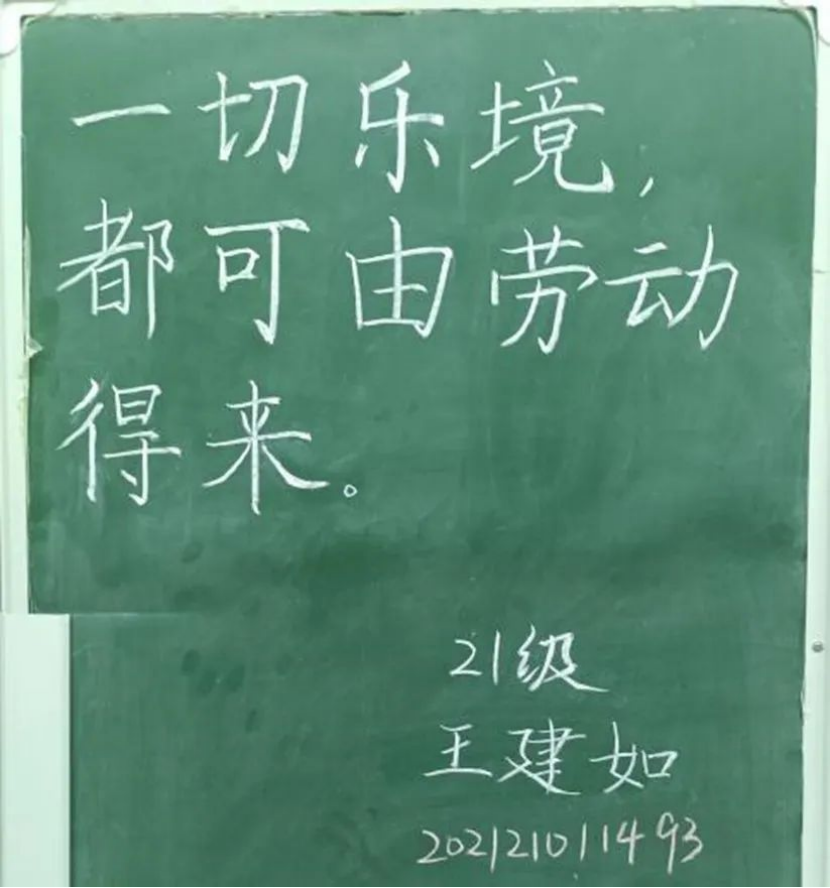 一切乐境，
都可由劳动
得来。
21级
王建如
202121011493